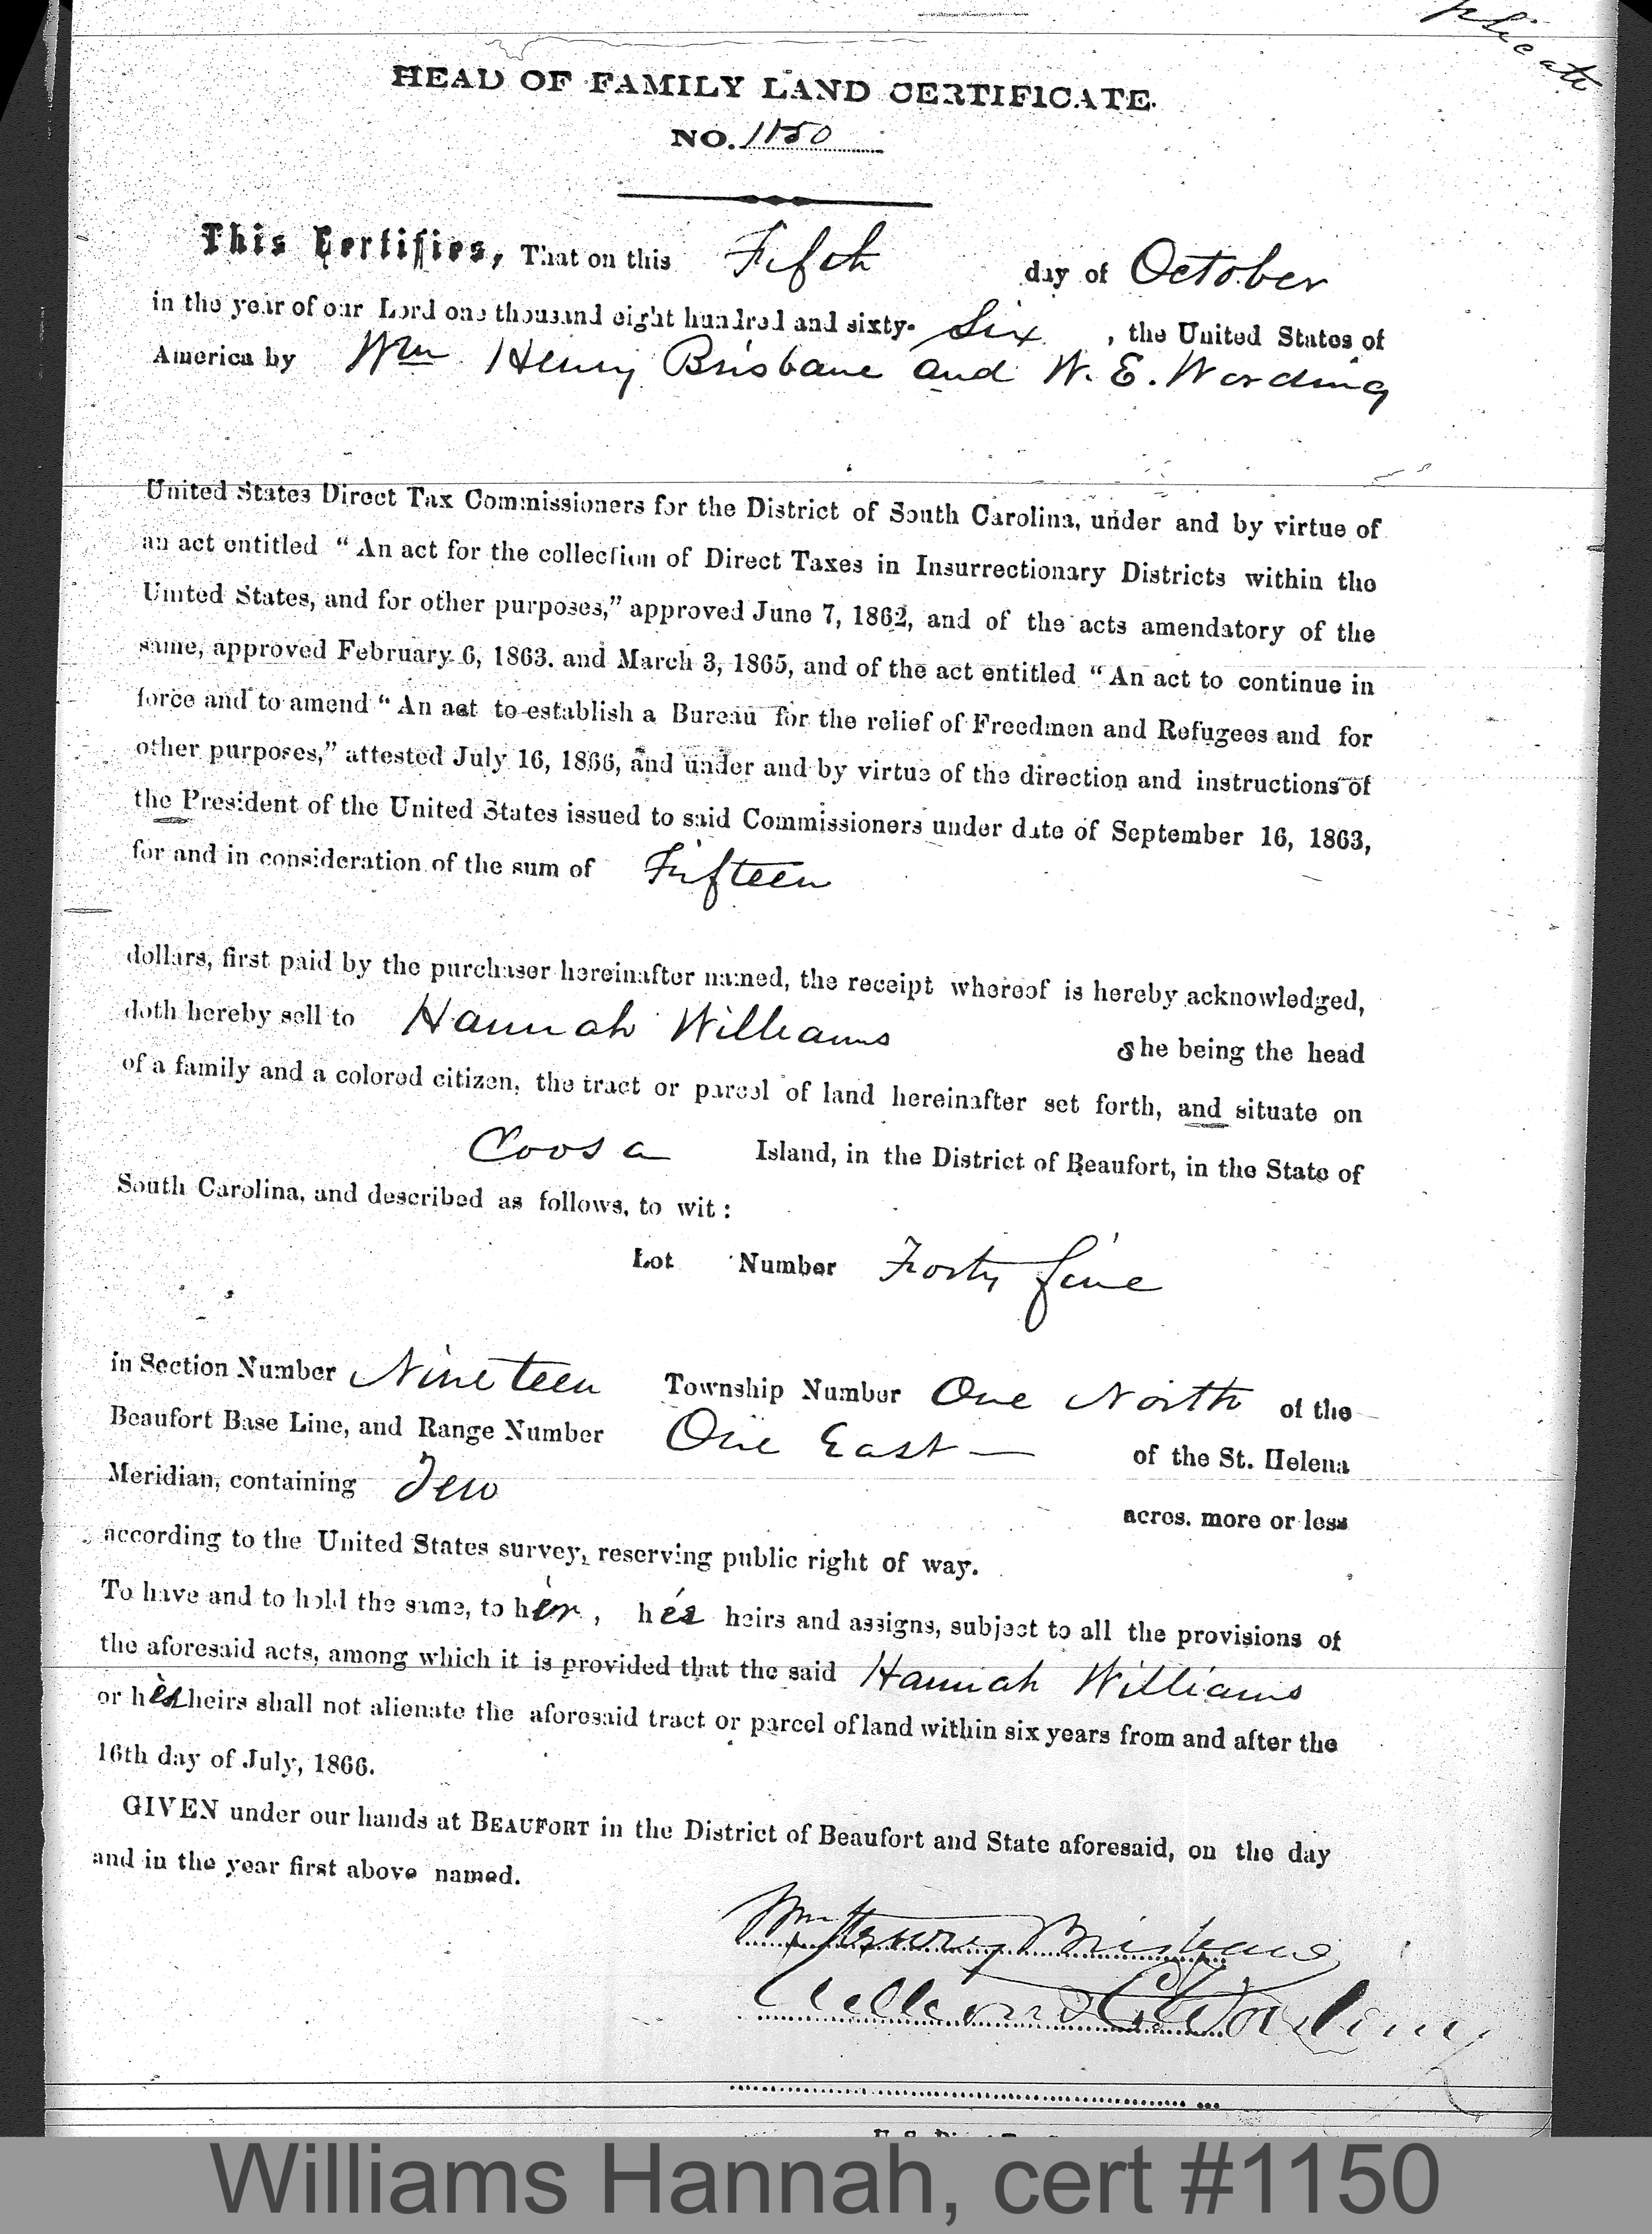 plicate
HEAD OF FAMILY LAND CERTIFICATE.
NO. 1150
This Certifies, That on this Fifth day of October
in the year of our Lord one thousand eight hundred and sixty- Six , the United States of
America by Wm Henry Brisbane and W. E. Wording
United States Direct Tax Commissioners for the District of South Carolina, under and by virtue of
an act entitled “ An act for the collection of Direct Taxes in Insurrectionary Districts within the
United States, and for other purposes,” approved June 7, 1862, and of the acts amendatory of the
same, approved February 6, 1863. and March 3, 1865, and of the act entitled “ An act to continue in
force and to amend “ An act to establish a Bureau for the relief of Freedmen and Refugees and for
other purposes,” attested July 16, 1866, and under and by virtue of the direction and instructions of
the President of the United States issued to said Commissioners under date of September 16, 1863,
for and in consideration of the sum of Fifteen
dollars, first paid by the purchaser hereinafter named, the receipt whereof is hereby acknowledged,
doth hereby sell to Hannah Williams She being the head
of a family and a colored citizen, the tract or parcel of land hereinafter set forth, and situate on
Coosa Island, in the District of Beaufort, in the State of
South Carolina, and described as follows, to wit :
Lot Number Forty five
in Section Number Nineteen Township Number One North of the
Beaufort Base Line, and Range Number One East — of the St. Helena
Meridian, containing Ten acres. more or less
according to the United States survey, reserving public right of way.
To have and to hold the same, to her , her heirs and assigns, subject to all the provisions of
the aforesaid acts, among which it is provided that the said Hannah Williams
or her heirs shall not alienate the aforesaid tract or parcel of land within six years from and after the
16th day of July, 1866.
GIVEN under our hands at BEAUFORT in the District of Beaufort and State aforesaid, on the day
and in the year first above named.
Wm Henry Brisbane
William E Wording
Williams Hannah, cert #1150